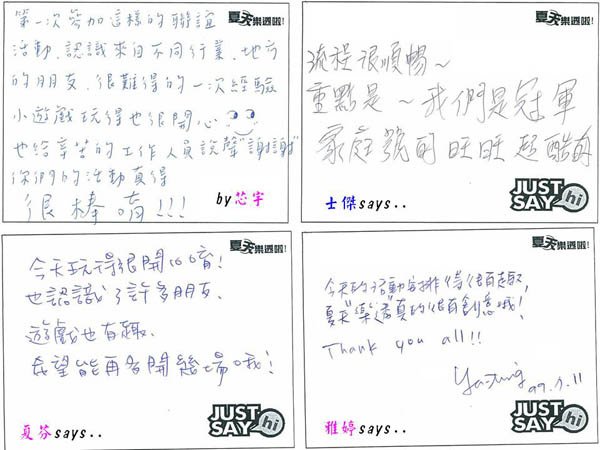 夏天樂透啦!
第一次參加這樣的聯誼
活動,認識來自不同行業、地方
的朋友,很難得的一次經驗
小遊戲玩得也很開心
也給辛苦的工作人員說聲"謝謝"
你們的活動真得
很棒唷!!!
by芯宇
夏天樂透啦!
流程很順暢~
重點是~我們是冠軍
家庭號的旺旺超酷的
JUST
SAY hi
士傑says..
夏天樂透啦!
今天玩得很開心唷!
也認識了許多朋友.
遊戲也有趣.
希望能再多開幾場哦!
JUST
SAY hi
夏芬says..
夏天樂透啦!
今天的活動安排得很有趣,
夏天"樂透"真的很有創意哦!
Thank you all!!
Ya-ting
99.7.11
JUST
SAY hi
雅婷says..